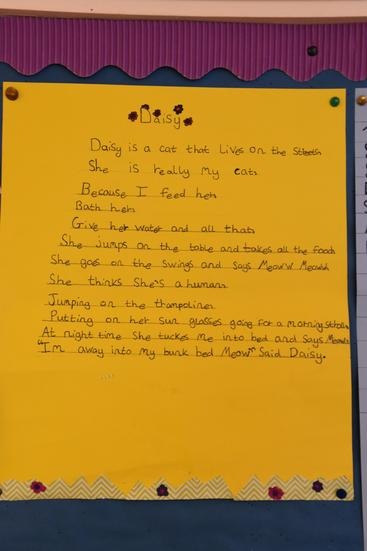 Daisy
Daisy is a cat that Lives on the Streets
She is really my cat.
Because I feed her.
Bath her.
Give her water and all that.
She jumps on the table and takes all the food.
She goes on the Swings and Says Meoww Meoww.
She thinks She's a human.
Jumping on the trampoline.
Putting on her Sun glasses going for a morning Stroll.
At night time She tuckes me into bed and Says Meoww
"I'm away into my bunk bed Meow" Said Daisy.